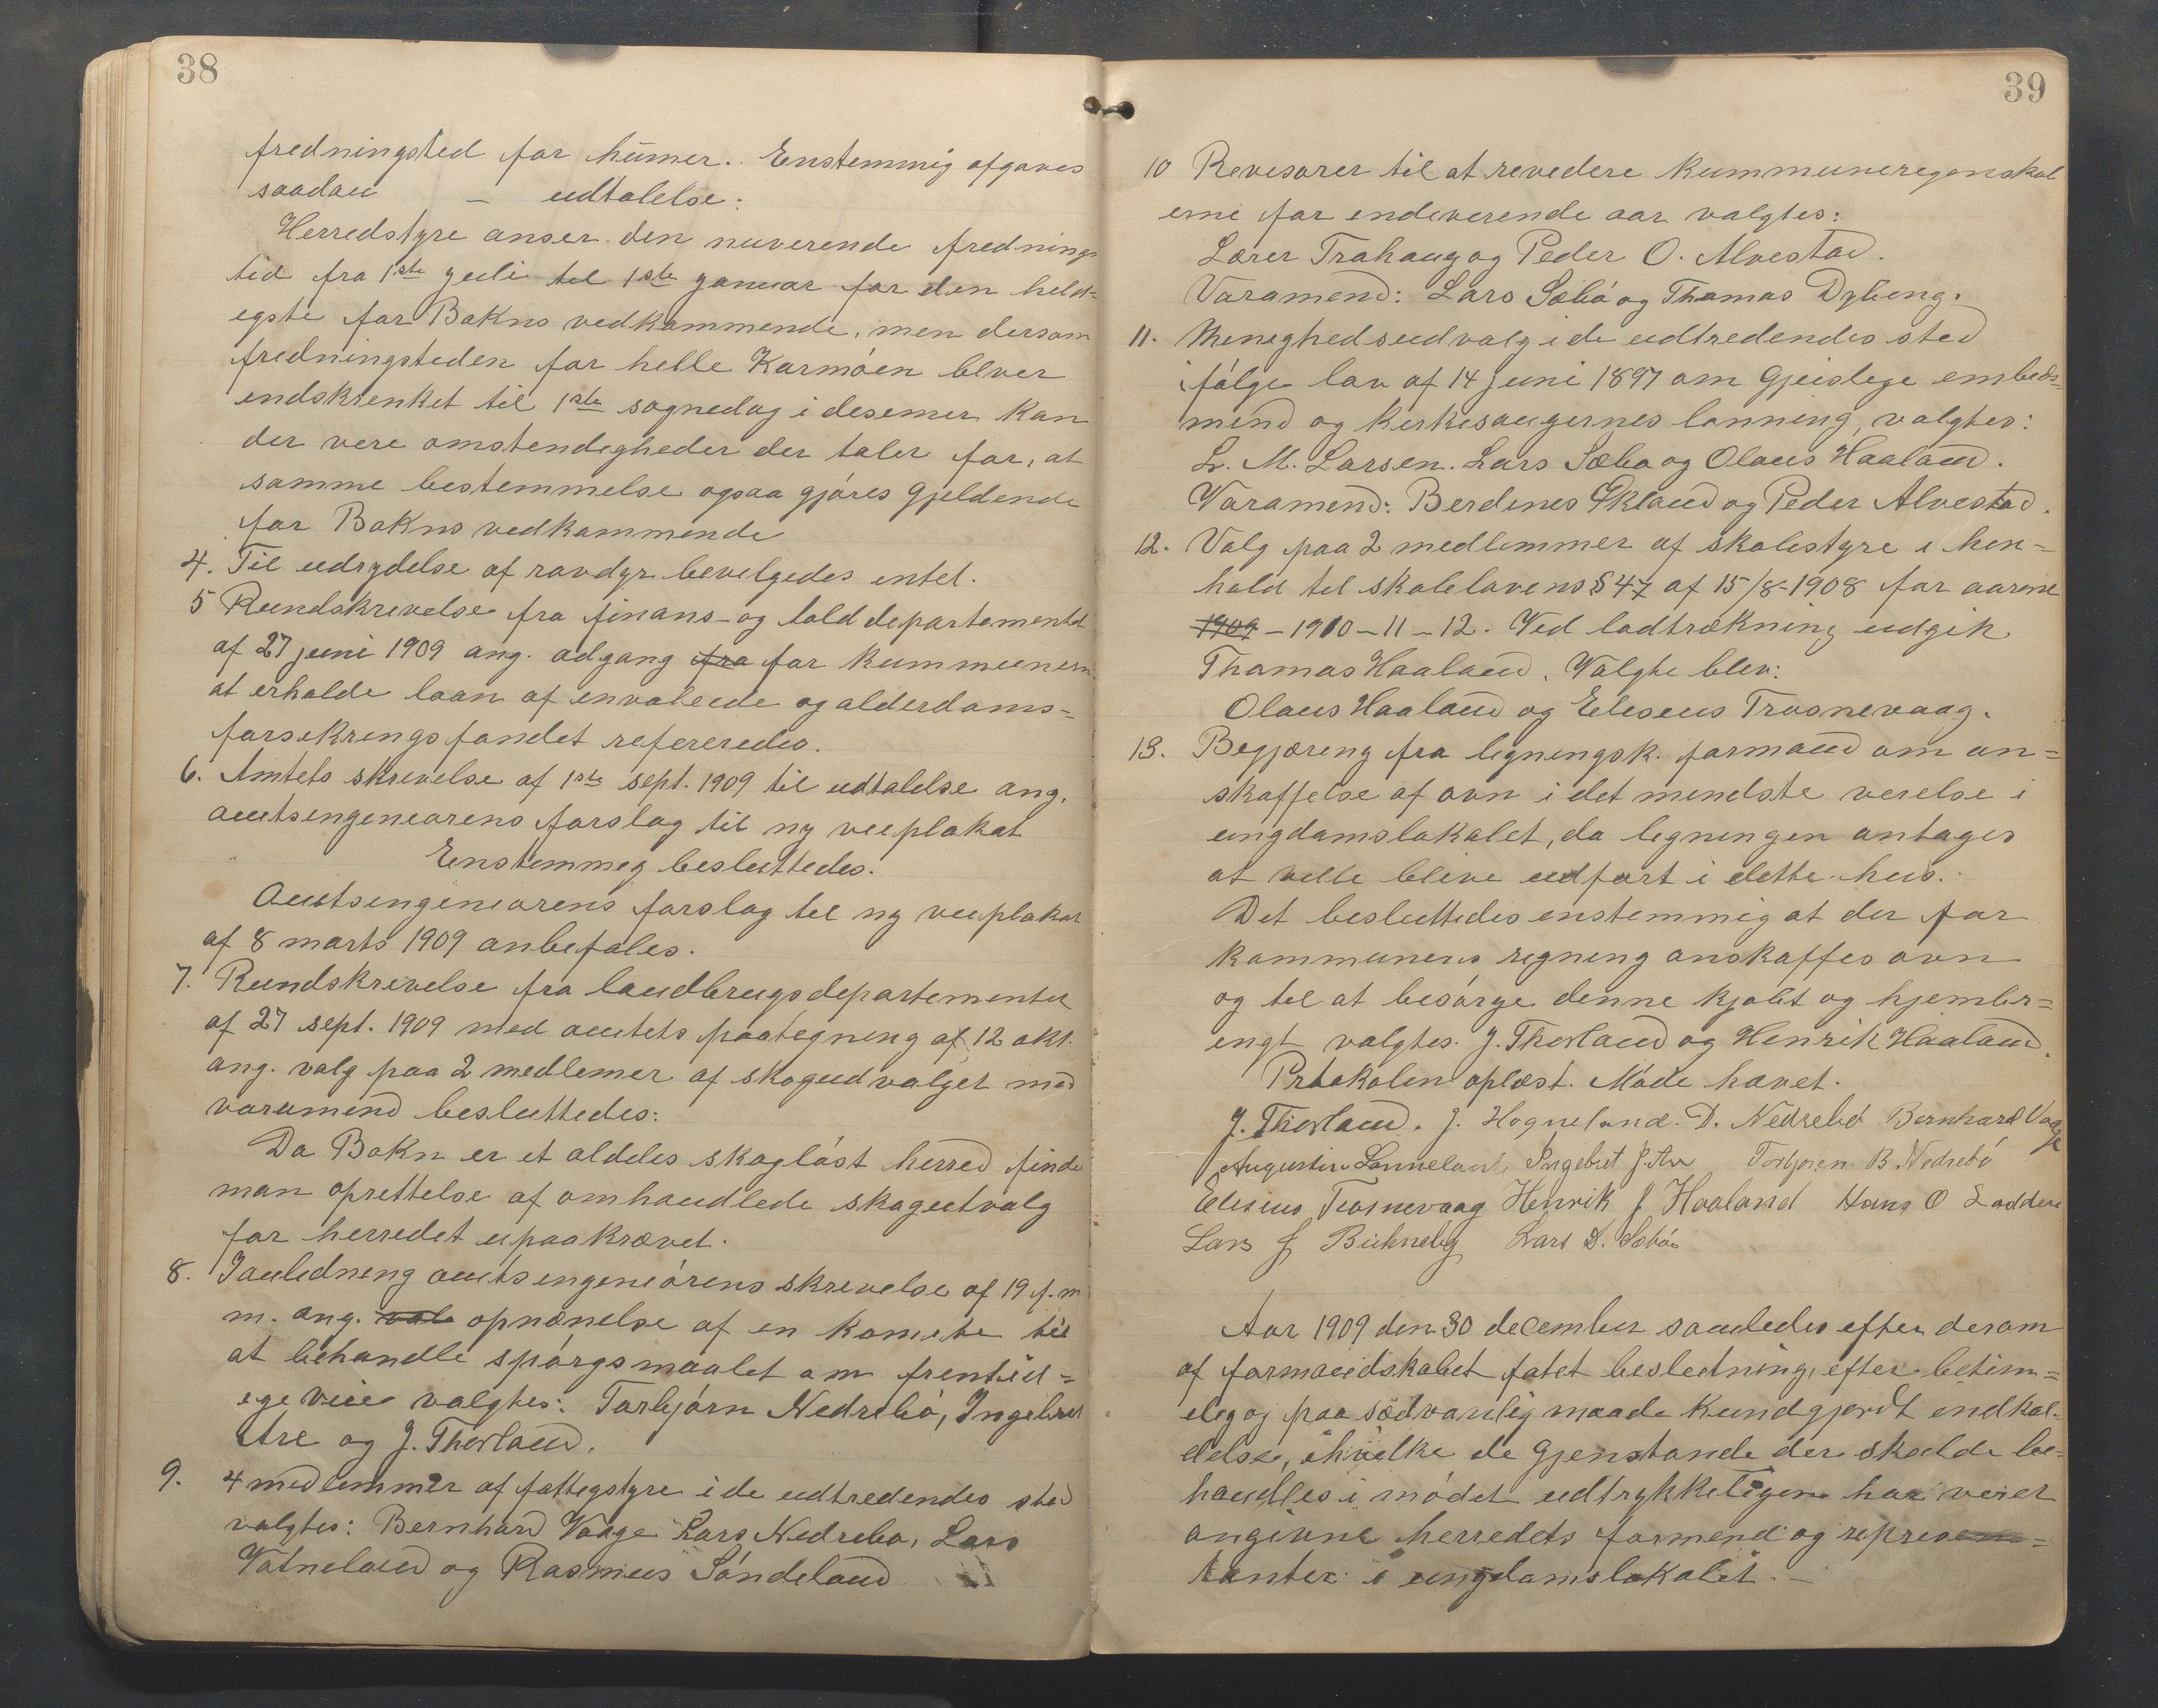 38
fredningsted for hummer. Enstemmig afgaves
saadan – udtalelse:
Herredstyre anser den nuverende frednings
tid fra 1ste juli til 1ste januar for den held-
egste for Bokns vedkommende, men dersom
fredningsteden for helle Karmóen blver
endskrenket til 1ste sognedag i desemer kan
der vere omstendegheder der taler for, at
samme bestemmelse ogsaa gjóres gjeldende
for Bokns vedkommende
4. Til udrydelse af rovdyr bevelgedes entet.
5 Rundskrevelse fra finans- og told departementet
af 27 juni 1909 ang. adgang fra for kummunern
at erholde laan af envaleede og alderdoms=
forsekrengsfondet refereredes.
6. Amtets skrevelse af 1ste sept. 1909 til udtalelse ang.
amtsengeneorens forslag til ny veeplakat
Enstemmeg besluttedes.
Amtsengeneorens forslag tel ny veeplakat
af 8 marts 1909 anbefales.
7. Rundskrevelse fra landbrugsdepartementet
af 27 sept. 1909 med amtets paategneng af 12 okt.
ang. valg paa 2 medlemer af skogudvalget med
varamend besluttedes:
Da Bokn er et aldeles skoglóst herred finder
man oprettelse af omhandlede skogutvalg
for herredet upaakrævet.
8. I anledneng amtsengeneórens skrevelse af 19 f. m
m. ang. val opnænelse af en komete til
at behandle spórgsmaalet om fremtid=
ege veie valgtes: Torbjórn Nedrebó, Ingebret
Are og J. Thorland.
9. 4 medlemmer af fattegstyre i de udtredendes sted
valgtes: Bernhard Vaage Lars Nedrebo, Lars
Vatneland og Rasmus Sóndeland
39
10 Revesorer til at revedere kummuneregenskab
erne for endeverende aar valgtes:
Lærer Trohaug og Peder O. Alvestad.
Varamend: Lars Sæbó og Thomas Dybeng.
11. Meneghedsudvalg i de udtredendes sted
ifólge lov af 14 juni 1897 om gjeislege embeds=
mend og kerkesangernes lonning, valgtes:
L. M. Larsen. Lars Sæbo og Olaus Haaland.
Varamend: Berdenes Økland og Peder Alvestad.
12. Valg paa 2 medlemmer af skolestyre i hen=
hold tel skolelovens § 47 af 15/8-1908 for aarene
1909 – 1910 – 11 – 12. Ved lodtrækning udgik
Thomas Haaland. Valgte blev:
Olaus Haaland og Eleseus Trosnevaag.
13. Begjæreng fra legningsk. formand om an=
skaffelse af ovn i det mendste verelse i
ungdomslokalet, da legningen antages
at velle blive udfort i dette hus.
Det besluttedes enstemmig at der for
kommunens regning anskaffes ovn
og tel at besórge denne kjóbt og hjembr=
engt valgtes. J. Thorland og Henrik Haaland.
Prtokolen oplæst. Móde hævet.
J. Thorland. J. Hogneland. D. Nedrebó Bernhard Vaage
Augustin Sanneland, Ingebret J. Are Torbjoren B. Nedrebó
Elesius Trosnevaag Henrik J Haaland Hans O Loddere
Lars J Lars D. Sæbó
Aar 1909 den 30 december samledes efter derom
af formandskabet fatet besledning, efter betim=
eleg og paa sædvanlig maade kundgjordt indkal-
delse, ihvilke de gjenstande der skulde be-
handles i mødet udtrykkeligen har veret
angivne herredets formend og represen=
tanter i ungdomslokalet. –